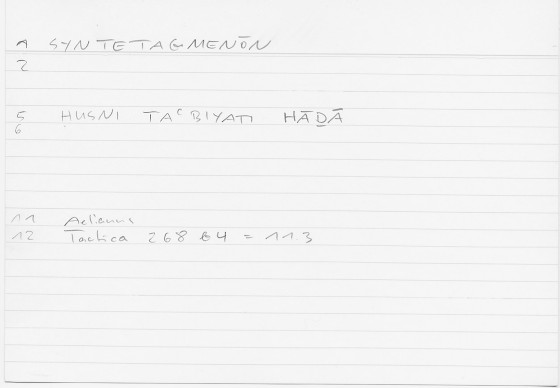 1 SYNTETAGMENŌN
2
5 HUSNI TAᶜBIYATI HĀḎĀ
6
11 Aelianus
12 Tactica 268 64 = 11.3